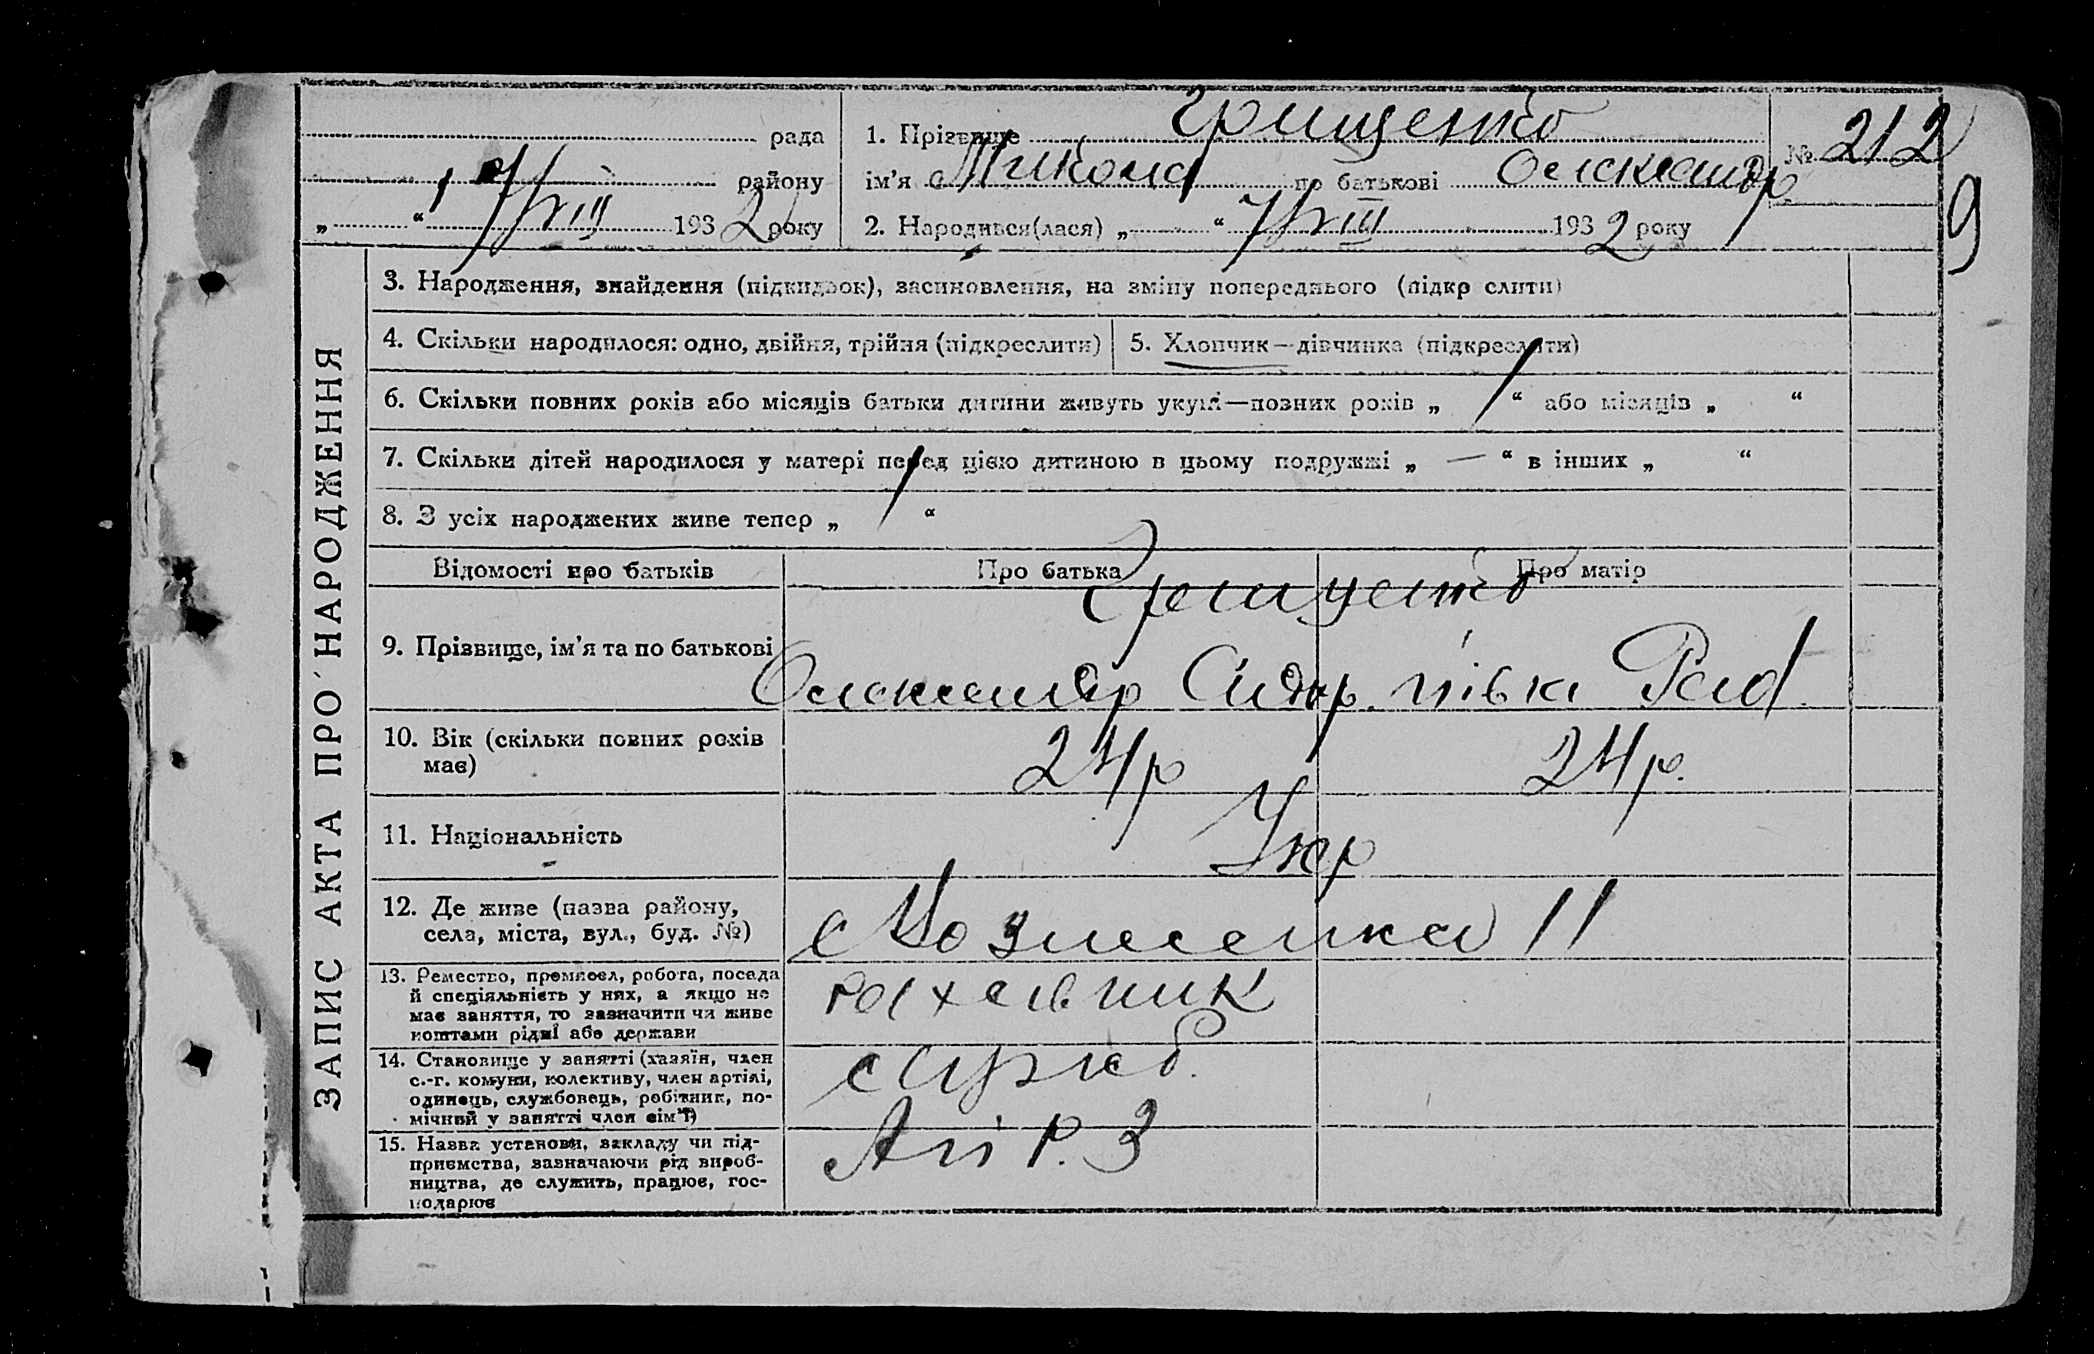 рада 1. Прізвище Грищенко № 212
району ім'я Микола по батькові Олександр 9
„ “ 17/VIII 1932 року 2. Народився(лася) „ “ 7/VIII 1932 року
ЗАПИС АКТА ПРО НАРОДЖЕННЯ
3. Народження, знайдення (підкидьок), засиновлення, на зміну попереднього (підкр слити)
4. Скільки народилося: одно, двійня, трійня (підкреслити) 5. Хлопчик—дівчинка (підкреслити)
6. Скільки повних років або місяців батьки дитини живуть укупі—повних років „ 1 “ або місяців „ “
7. Скільки дітей народилося у матері перед цією дитиною в цьому подружжі „ — “ в інших „ “
8. З усіх народжених живе тепер „ 1 “
Відомості про батьків Про батька Про матір
Грищенко
9. Прізвище, ім'я та по батькові
Олександр Сидор.
10. Вік (скільки повних років 24 р 24 р.
має)
11. Національність Укр
12. Де живе (назва району, с Вознесенка 11
села, міста, вул., буд. №)
13. Ремество, промисел, робота, посада
й спеціяльність у них, а якщо не
має заняття, то зазначити чи живе
коштами рідні або держави
рахівник
14. Становище у занятті (хазяїн, член
с.-г. комуни, колективу, член артілі,
одинець, службовець, робітник, по-
мічний у занятті член сім'ї)
служб.
15. Назва установи, закладу чи під-
приємства, зазначаючи рід вироб-
ництва, де служить, працює, гос-
подарює